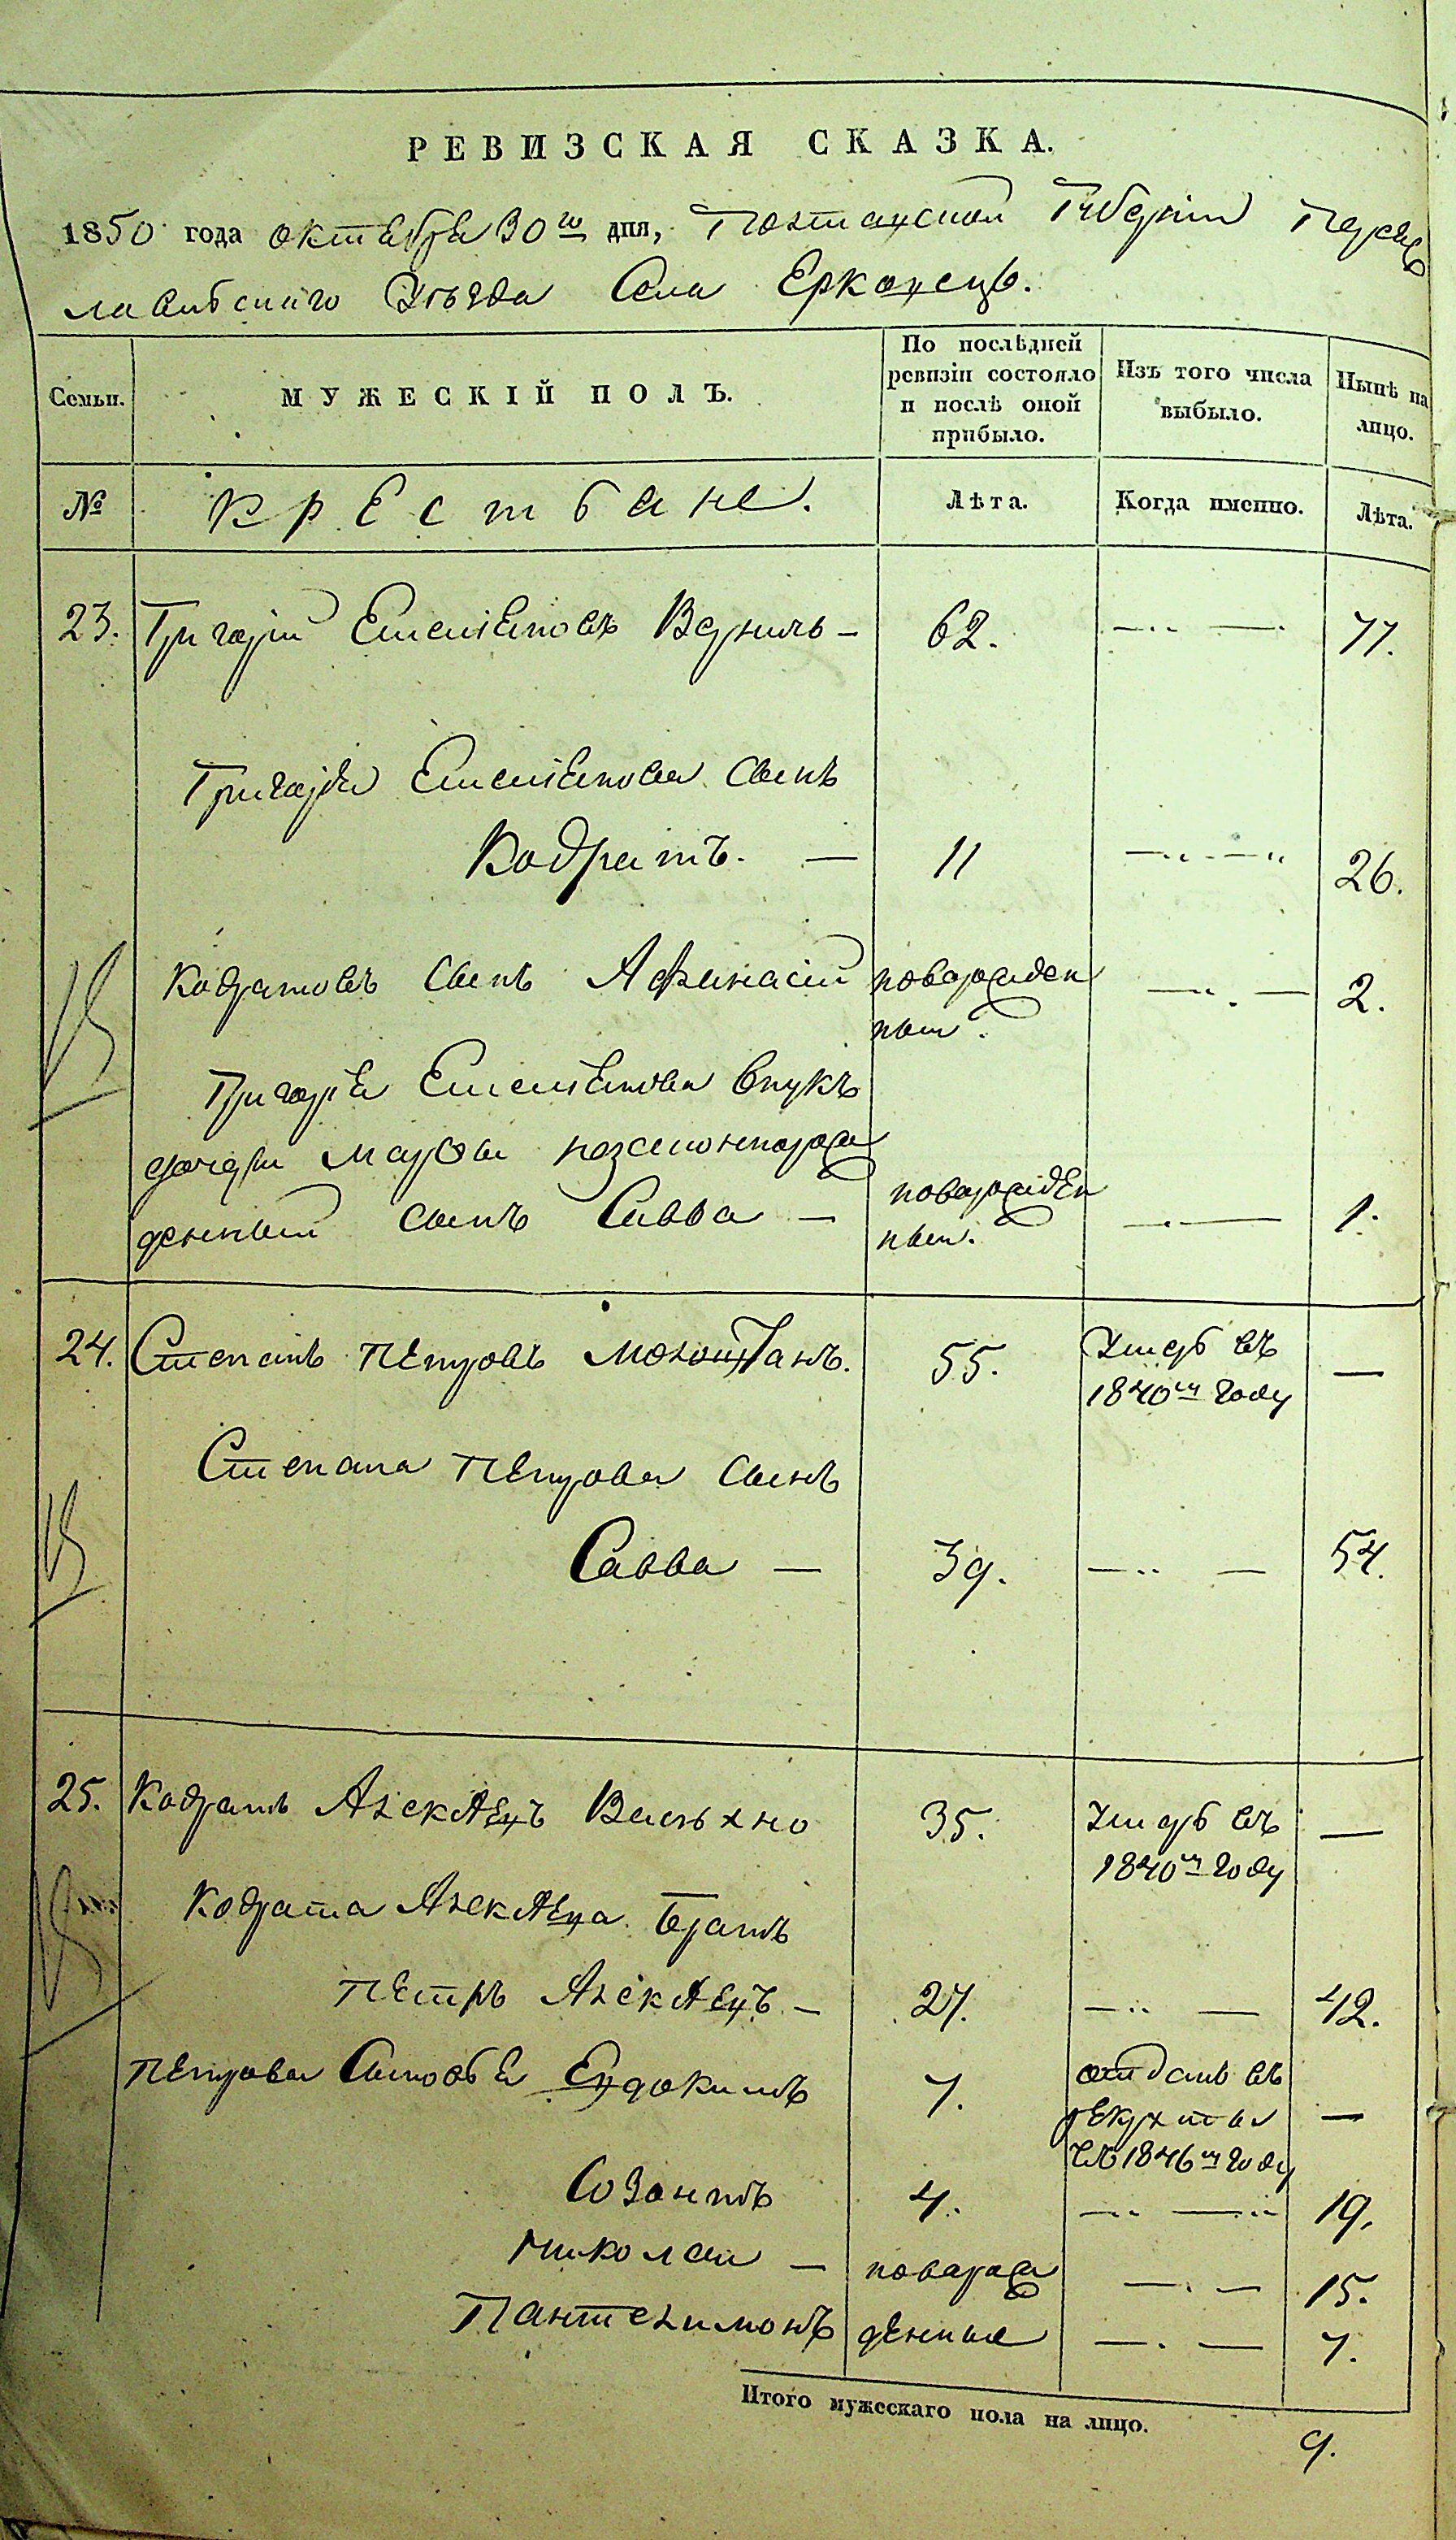 РЕВИЗСКАЯ СКАЗКА.
1850 года октября 30го дня, Полтавской Губернии Переяс
лавскаго Уезда Села Ерковець.
Семьи. МУЖЕСКІЙ ПОЛЪ. По послѣдней ревизіи состояло и послѣ оной прибыло. Изъ того числа выбыло. Нынѣ на лицо.
№ Крестьяне. Лѣта. Когда именно. Лѣта.
23. Григорій Емельяновъ 62. 77.
Григорія Емельянова сынъ
Кодратъ. — 11 26.
Кодратовъ сынъ Афанасій новорожден 2.
ный.
Григорія Емельянова внукъ
дочери Марфы незаконнорож
денный сынъ Савва — новорожден 1.
ный.
24. Степанъ Петровъ 55. Умеръ въ —
1840м году
Степана Петрова сынъ
Савва — 39. 54.
25. Кодратъ Алексѣевъ Вельхно 35. Умеръ въ —
1840м году
Кодрата Алексѣева братъ
Петръ Алексѣевъ — 27. 42.
Петрова сыновья Евдокимъ 7. отданъ въ
рекруты —
въ 1846м году
Созонтъ 4. 19.
Николай — новорож 15.
Пантелимонъ денные 7.
Итого мужескаго пола на лицо.
9.